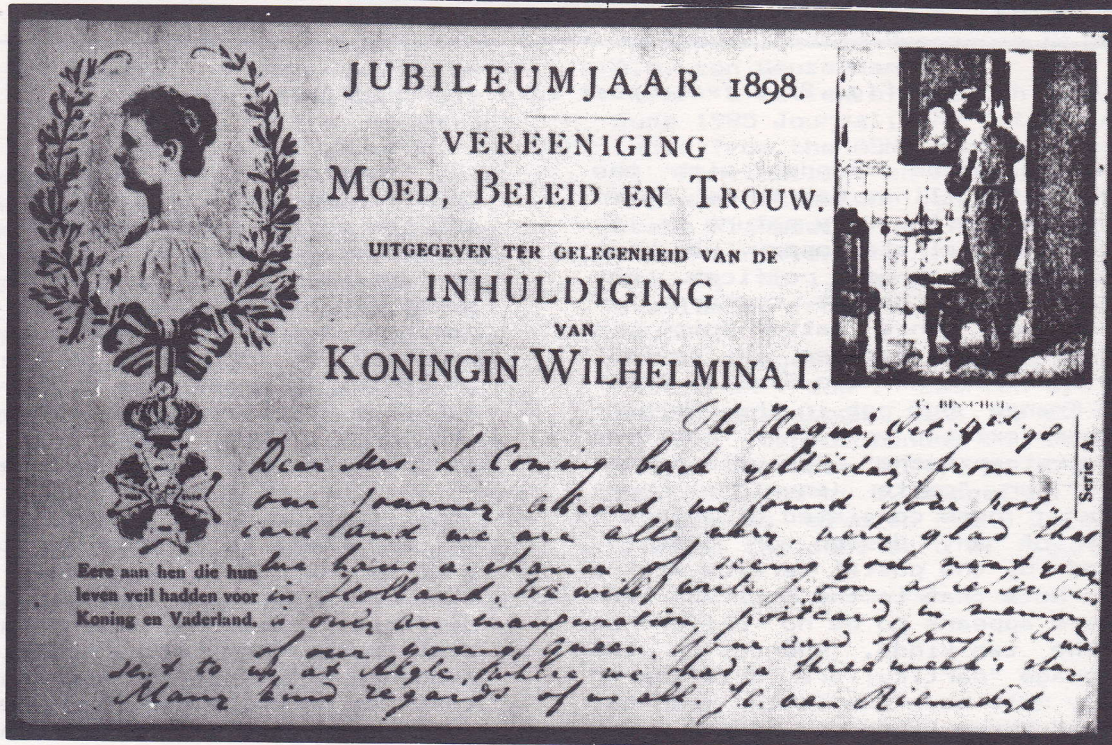 JUBILEUMJAAR 1898.
VEREENIGING
MOED, BELEID EN TROUW.
UITGEGEVEN TER GELEGENHEID VAN DE
INHULDIGING
VAN
KONINGIN WILHELMINA I.
C. BISSCHOP.
Serie A.
Eere aan hen die hun
leven veil hadden voor
Koning en Vaderland.
The Hague, Oct. 9th 98
Dear Mrs. L. Coming back yesterday from
our journey abroad we found your post-
card and we are all very, very glad that
we have a chance of seeing you next year
in Holland. We will write soon a letter, this
is only an inauguration postcard, in memory
of our young Queen. Your card of Aug: it was
sent to us at Aigle, where we had a three week's stay
Many kind regards of us all. J.C. van Riemsdyk